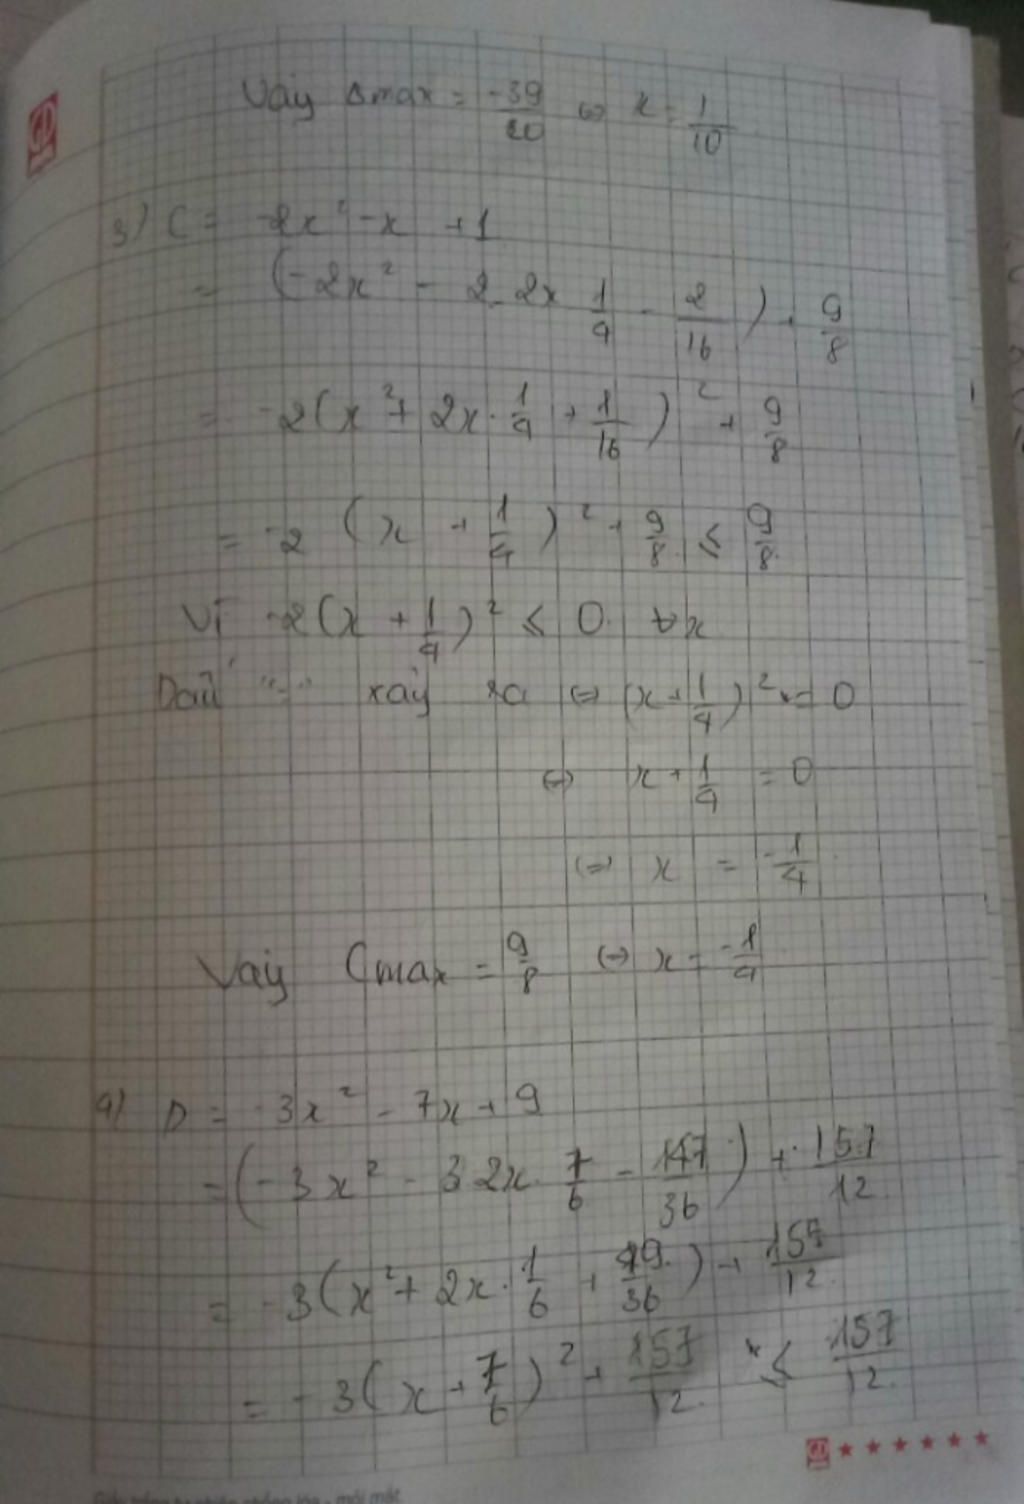 Vậy Amax = -39/20 ⇔ x = 1/10
3) C = -2x² - x + 1
= (-2x² - 2.2x 1/4 - 2/16) + 9/8
= -2(x² + 2x . 1/4 + 1/16)² + 9/8
= -2 (x + 1/4)² + 9/8 ≤ 9/8
Vì -2(x + 1/4)² ≤ 0 ∀x
Dấu "=" xảy ra ⇔ (x + 1/4)² = 0
⇔ x + 1/4 = 0
⇔ x = -1/4
Vậy Cmax = 9/8 ⇔ x = -1/4
4) D = -3x² - 7x + 9
= (-3x² - 3 2x . 7/6 - 147/36) + 157/12
= -3(x² + 2x . 1/6 + 49/36) + 157/12
= -3(x + 7/6)² + 157/12 ≤ 157/12